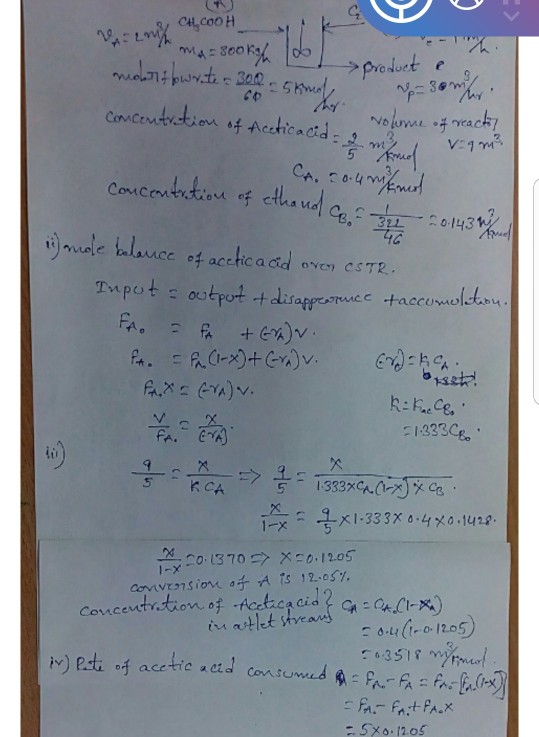 CH3COOH
vA = 2 m³/h
mA = 300 Kg/h
product
molar flowrate = 300/60 = 5 Kmol/hr.
vp = 3 m³/hr.
Concentration of Acetic acid = 2/5 m³/Kmol
volume of reactor V = 9 m³
CA₀ = 0.4 m³/Kmol
Concentration of ethanol CB₀ = 1/(322/46) = 0.143 m³/Kmol
ii) mole balance of acetic acid over CSTR.
Input = output + disappearance + accumulation.
FA₀ = FA + (-rA) V.
FA₀ = FA₀(1-X) + (-rA) V. (-rA) = K CA.
FA₀ X = (-rA) V. K = Kac CB₀.
V/FA₀ = X/(-rA). = 1.333 CB₀.
iii)
9/5 = X/(K CA) => 9/5 = X/(1.333 x CA₀(1-X) x CB.
X/(1-X) = 9/5 x 1.333 x 0.4 x 0.1428.
X/(1-X) = 0.1370 => X = 0.1205
conversion of A is 12.05%.
Concentration of Acetic acid } CA = CA₀(1-XA)
in outlet stream
= 0.4(1-0.1205)
= 0.3518 m³/Kmol.
iv) Rate of acetic acid consumed = FA₀ - FA = FA₀ - [FA₀(1-X)]
= FA₀ - FA₀ + FA₀ X
= 5 x 0.1205